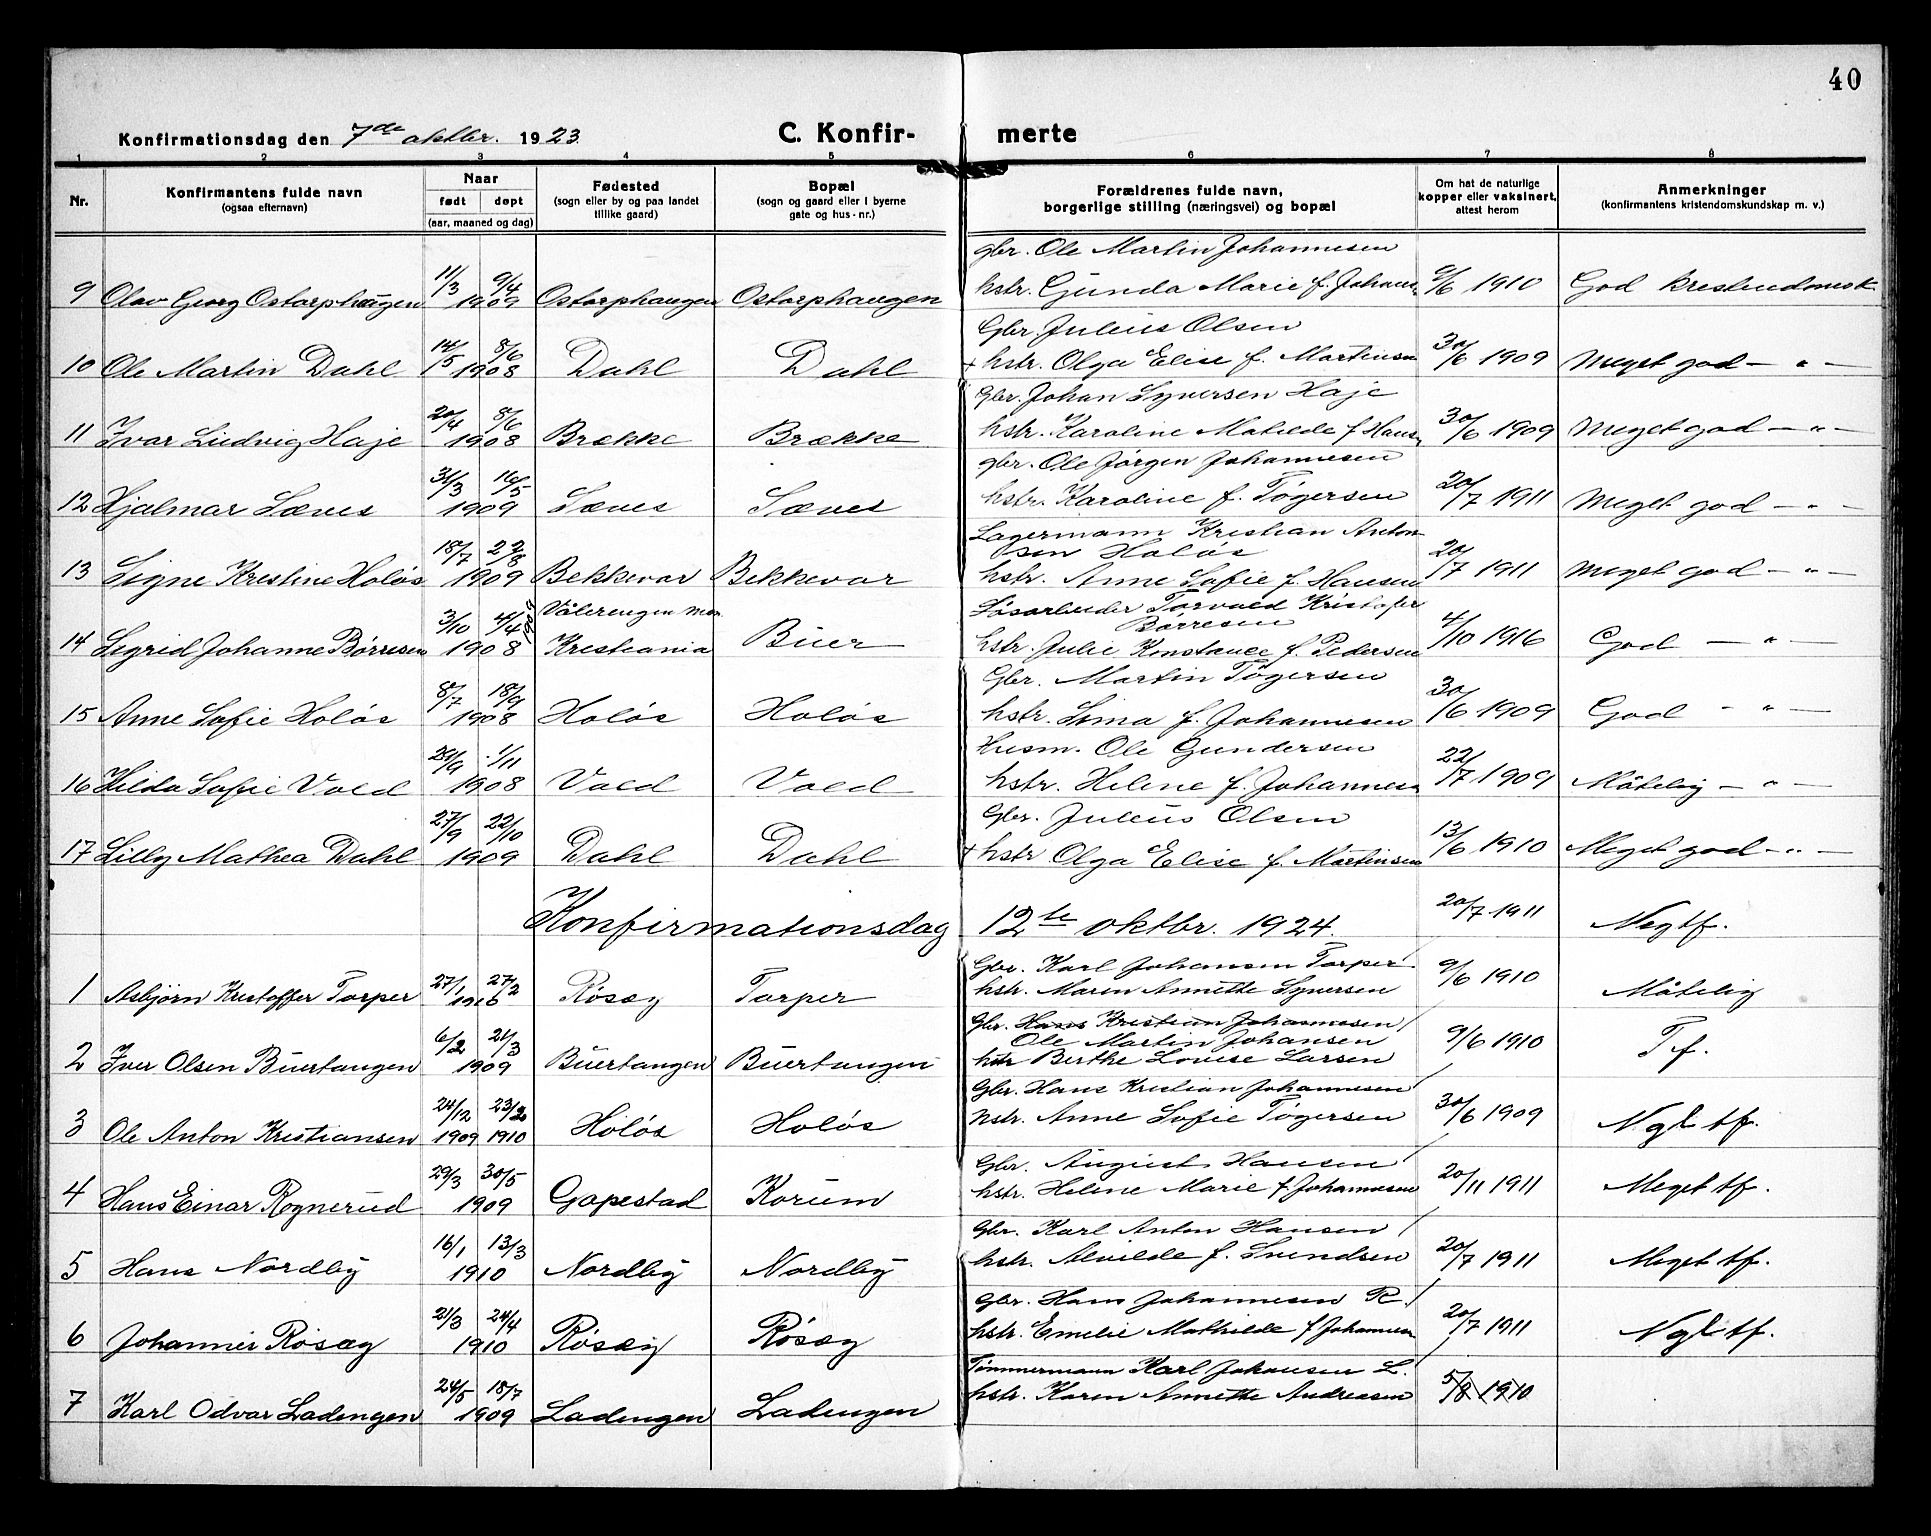 40
Konfirmationsdag den 7de oktbr. 1923 C. Konfir- merte
1 2 3 4 5 6 7 8
Nr. Konfirmantens fulde navn (ogsaa efternavn) Naar født døpt (aar, maaned og dag) Fødested (sogn eller by og paa landet tillike gaard) Bopæl (sogn og gaard eller i byerne gate og hus-nr.) Forældrenes fulde navn, borgerlige stilling (næringsvei) og bopæl Om hat de naturlige kopper eller vaksinert, attest herom Anmerkninger (konfirmantens kristendomskundskap m. v.)
gbr. Ole Martin Johannesen
9 Olav Georg Ostorphaugen 11/3 9/4 1909 Ostorphaugen Ostorphaugen hstr. Gunda Marie f. Johans 9/6 1910 God kristendomsk.
Gbr. Julius Olsen
10 Ole Martin Dahl 14/5 8/6 1908 Dahl Dahl + hstr. Olga Elise f. Martinsen 30/6 1909 Meget god - " -
Gbr. Johan Syversen Haje
11 Ivar Ludvig Haje 20/4 8/6 1908 Brække Brække hstr. Karoline Matilde f Hansn 30/6 1909 Meget god - " -
gbr. Ole Jørgen Johannesen
12 Hjalmar Sæves 31/3 16/5 1909 Sæves Sæves hstr. Karoline f. Tøgersen 20/7 1911 Meget god - " -
Lagermann Kristian Anton
sen Holøs
13 Signe Kristine Holøs 18/7 22/8 1909 Bekkevar Bekkevar hstr. Anne Sofie f. Hansen 20/7 1911 Meget god - " -
Vålerengen men Løsarbeider Torvald Kristofer
Børresen
14 Sigrid Johanne Børresen 3/10 4/4 1909 1908 Kristiania Buer hstr. Julie Konstance f. Pedersen 4/10 1916 God - " -
Gbr. Martin Tøgersen
15 Anne Sofie Holøs 8/7 18/9 1908 Holøs Holøs hstr. Lina f. Johannesen 30/6 1909 God - " -
Husm. Ole Gundersen
16 Hilda Sofie Vold 29/9 1/11 1908 Vold Vold hstr. Helene f. Johannesn 22/7 1909 Måtelig - " -
Gbr. Julius Olsen
17 Lilly Mathea Dahl 27/9 22/10 1909 Dahl Dahl + hstr Olga Elise f. Martinsen 13/6 1910 Meget god - " -
Konfirmationsdag 12te oktbr. 1924. 20/7 1911 Neg tf.
Gbr. Karl Johansen Torper
1 Asbjörn Kristoffer Torper 27/1 27/2 1910 Røsæg Torper hstr. Maren Annette Syversen 9/6 1910 Måtelig
Gbr. Hans Kristian Johannesen
Ole Martin Johansen
2 Iver Olsen Buertangen 6/2 21/3 1909 Buertangen Buertangen hstr Berthe Lovise Larsen 9/6 1910 T f.
Gbr. Hans Kristian Johannesen
3 Ole Anton Kristiansen 24/12 23/2 1909 1910 Holøs Holøs hstr. Anne Sofie Tøgersen 30/6 1909 Ngl tf.
Gbr. August Hansen
4 Hans Einar Rognerud 29/3 30/5 1909 Gopestad Korum hstr. Helene Marie f Johannesen 20/11 1911 Meget tf.
Gbr. Karl Anton Hansen
5 Hans Nordby 16/1 13/3 1910 Nordby Nordby hstr. Alvilde f. Svendsen 20/7 1911 Meget tf.
Gbr. Hans Johannesen R.
6 Johannes Røsæg 21/3 24/4 1910 Røsæg Røsæg hstr. Emelie Mathilde f Johannesn 20/7 1911 Ngl tf.
Tömmermann Karl Johansen L.
7 Karl Odvar Ladengen 24/5 18/7 1909 Ladengen Ladengen hstr. Karen Annette Andreasen 5/8 1910